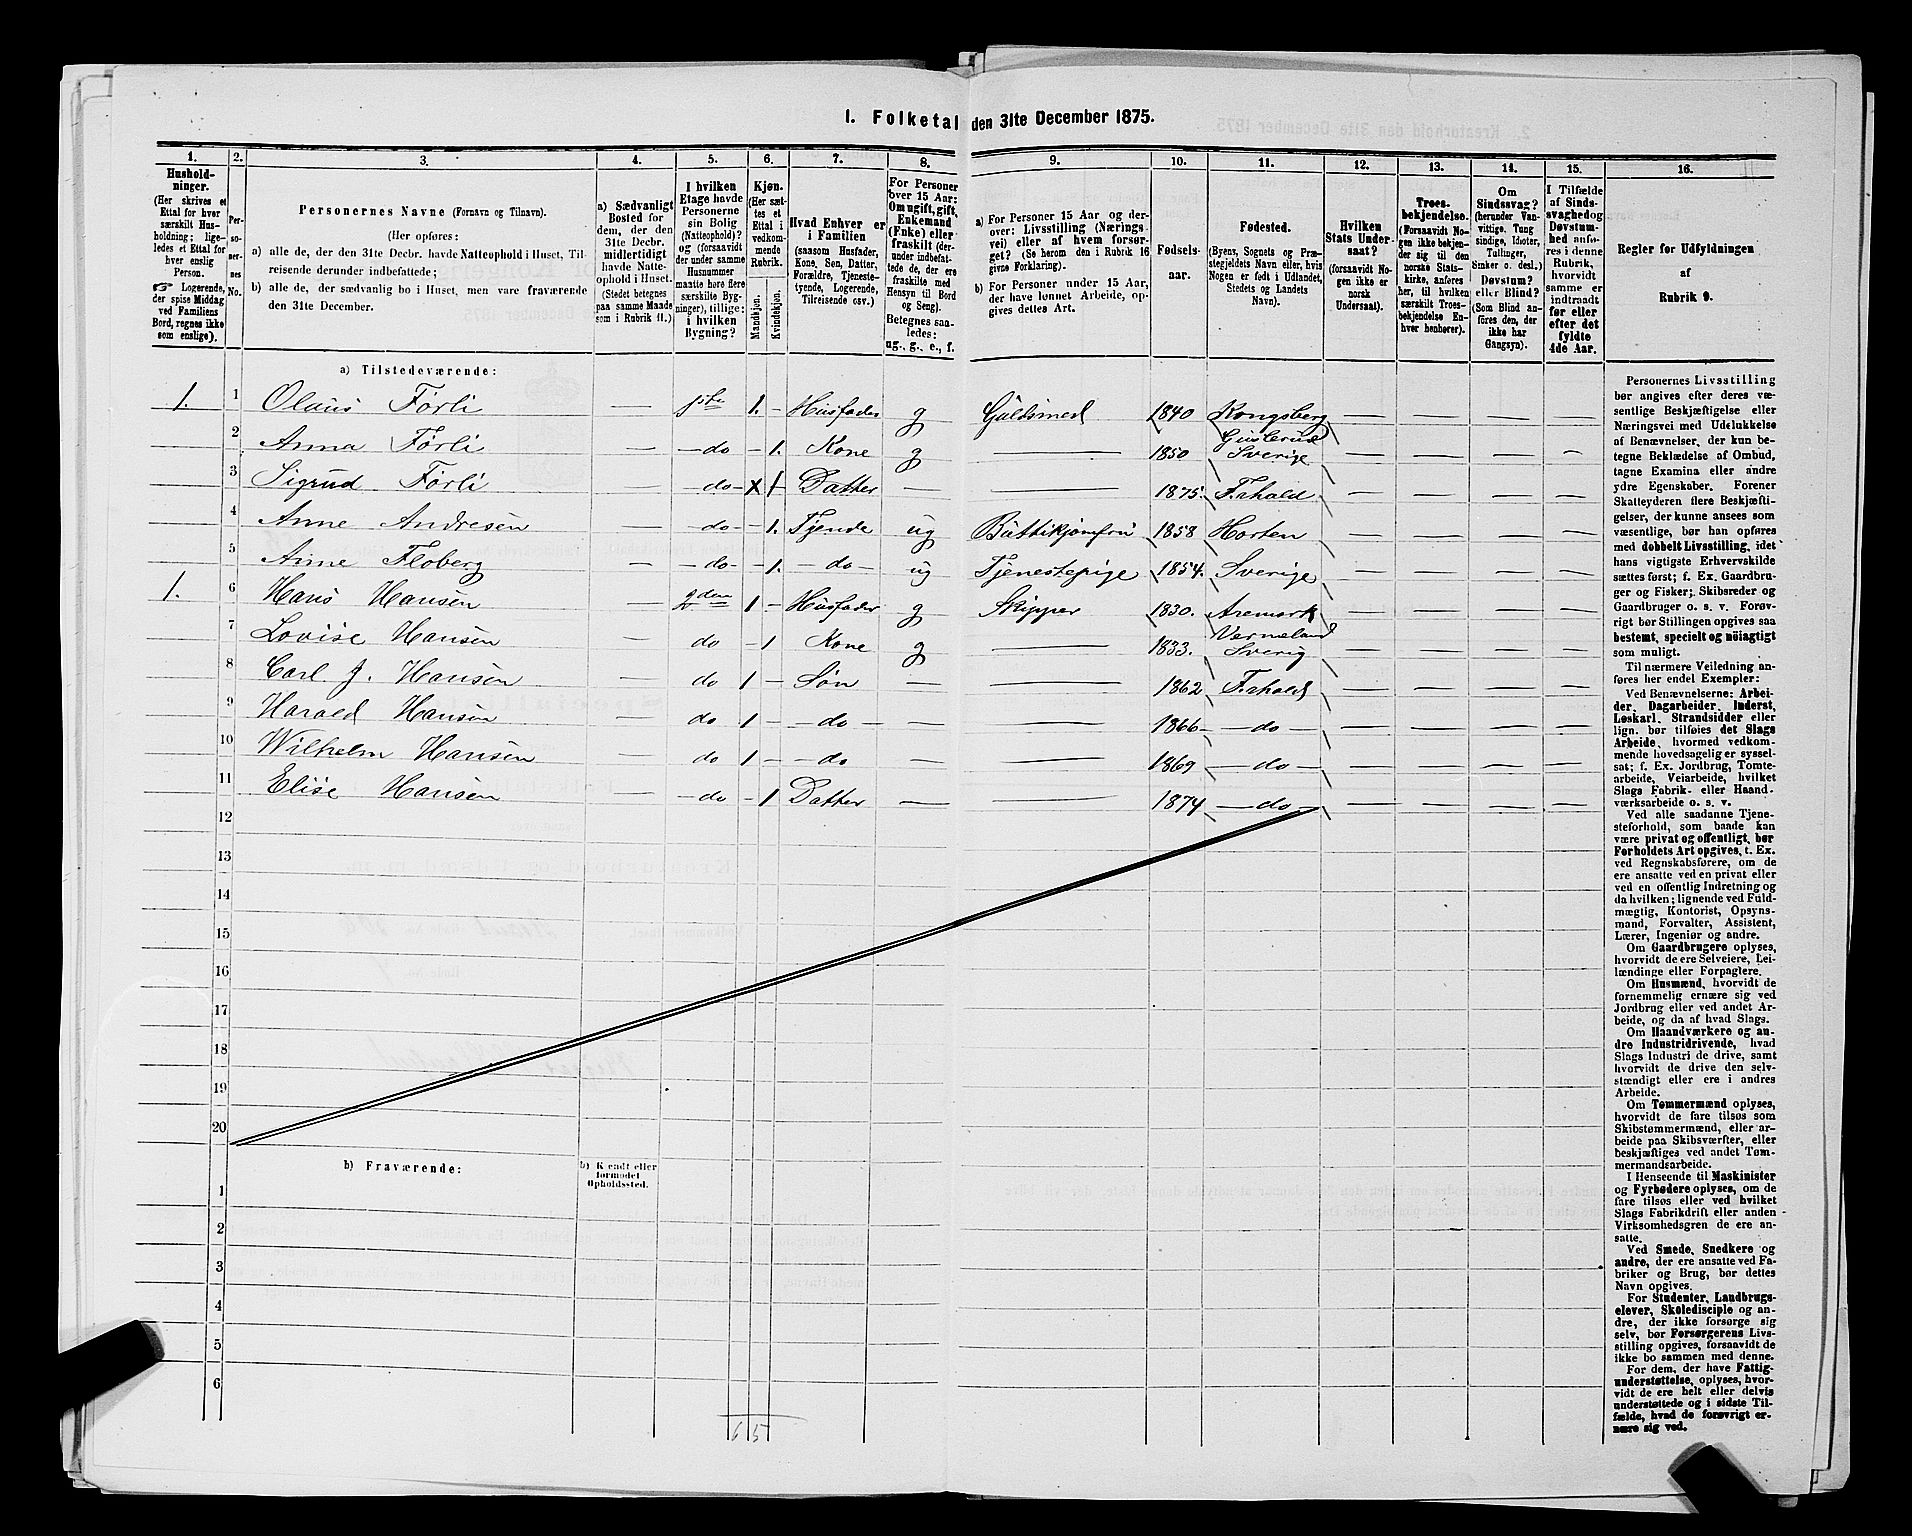 1. Folketal den 31te December 1875.
1. 2. 3. 4. 5. 6. 7. 8. 9. 10. 11. 12. 13. 14. 15. 16.
Husholdninger. (Her skrives et Ettal for hver særskilt Husholdning; ligeledes et Ettal for hver enslig Person. ☞ Logerende, der spise Middag ved Familiens Bord, regnes ikke som enslige).
Personernes No.
Personernes Navne (Fornavn og Tilnavn).
(Her opføres:
a) alle de, der den 31te Decbr. havde Natteophold i Huset, Tilreisende derunder indbefattede;
b) alle de, der sædvanlig bo i Huset, men vare fraværende den 31te December.
a) Sædvanligt Bosted for dem, der den 31te Decbr. midlertidigt havde Natteophold i Huset. (Stedet betegnes paa samme Maade som i Rubrik 11.)
I hvilken Etage havde Personerne sin Bolig (Natteophold)? og (forsaavidt der under samme Husnummer maatte høre flere særskilte Bygninger), tillige: i hvilken Bygning?
Kjøn. (Her sættes et Ettal i vedkommende Rubrik.
Mandkjøn. Kvindekjøn.
Hvad Enhver er i Familien (saasom Husfader, Kone, Søn, Datter, Forældre, Tjenestetyende, Logerende, Tilreisende osv.)
For Personer over 15 Aar: Om ugift, gift, Enkemand (Enke) eller fraskilt (derunder indbefattede de, der ere fraskilte med Hensyn til Bord og Seng). Betegnes saaledes: ug., g., e., f.
a) For Personer 15 Aar og derover: Livsstilling (Næringsvei) eller af hvem forsørget? (Se herom den i Rubrik 16 givne Forklaring).
b) For Personer under 15 Aar, der have lønnet Arbeide, opgives dettes Art.
Fødselsaar.
Fødested. (Byens, Sognets og Præstegjeldets Navn eller, hvis Nogen er født i Udlandet, Stedets og Landets Navn).
Hvilken Stats Undersaat? (forsaavidt Nogen ikke er norsk Undersaat).
Troesbekjendelse. (Forsaavidt Nogen ikke bekjender sig til den norske Statskirke, anføres her, til hvilken særskilt Troesbekjendelse Enhver henhører).
Om Sindssvag? (herunder Vanvittige, Tungsindige, Idioter, Tullinger, Sinker o. desl.) Døvstum? eller Blind? (Som Blind anføres den, der ikke har Gangsyn).
I Tilfælde af Sindssvaghed og Døvstumhed anføres i denne Rubrik, hvorvidt samme er indtraadt før eller efter det fyldte 4de Aar.
Regler for Udfyldningen af Rubrik 9.
a) Tilstedeværende:
1. 1 Olaus Førli — 1ste 1. – Husfader g Guldsmed 1840 Kongsberg — — — —
2 Anna Førli — —do —1. Kone g — 1850 Sverige — — — —
3 Sigrud Førli — do– x 1 Datter — — 1875. F.shald — — — —
4 Anne Andresen — —do– —1. Tjende ug Buttikjomfru 1858 Horten — — — —
5 Anne Floberg — —do– —1. —do— ug Tjenestepige 1854. Sverige — — — —
1. 6 Hans Hansen — 2den 1 – Husfader g Skipper 1830. Aremark — — — —
7 Lovise Hansen — do –1 Kone g — 1833. Vermeland Sverig — — — —
8 Carl J. Hansen — do 1 – Søn — — 1862 F.shald — — — —
9 Harald Hansen — do 1 – —do— — — 1866 —do— — — — —
10 Wilhelm Hansen — do 1 – —do — 1869 —do— — — — —
11 Elise Hansen — —do –1 Datter — — 1874 —do— — — — —
12
13
14
15
16
17
18
19
20
b) Fraværende:
b) Kjendt eller formodet Opholdssted.
1
2
3
4
5
6
6 5
Personernes Livsstilling
bør angives efter deres væ-
sentlige Beskjæftigelse eller
Næringsvei med Udelukkelse
af Benævnelser, der kun be-
tegne Beklædelse af Ombud,
tagne Examina eller andre
ydre Egenskaber. Forener
Skatteyderen flere Beskjæfti-
gelser, der kunne ansees som
væsentlige, bør han opføres
med dobbelt Livsstilling, idet
hans vigtigste Erhvervskilde
sættes først; f. Ex. Gaardbru-
ger og Fisker; Skibsreder og
Gaardbruger o. s. v. Forøv-
rigt bør Stillingen opgives saa
bestemt, specielt og nøiagtigt
som muligt.
Til nærmere Veiledning an-
føres her endel Exempler:
Ved Benævnelserne: Arbei-
der, Dagarbeider, Inderst,
Løskarl, Strandsidder eller
lign. bør tilføies det Slags
Arbeide, hvormed vedkom-
mende hovedsagelig er syssel-
sat; f. Ex. Jordbrug, Tomte-
arbeide, Veiarbeide, hvilket
Slags Fabrik- eller Haand-
værksarbeide o. s. v.
Ved alle saadanne Tjene-
steforhold, som baade kan
være privat og offentligt, bør
Forholdets Art opgives, t. Ex.
ved Regnskabsførere, om de
ere ansatte ved en privat eller
ved en offentlig Indretning og
da hvilken; lignende ved Fuld-
mægtig, Kontorist, Opsyns-
mand, Forvalter, Assistent,
Lærer, Ingeniør og andre.
Om Gaardbrugere oplyses,
hvorvidt de ere Selveiere, Lei-
lændinge eller Forpagtere.
Om Husmænd, hvorvidt de
fornemmelig ernære sig ved
Jordbrug eller ved andet Ar-
beide, og da af hvad Slags.
Om Haandværkere og an-
dre Industridrivende, hvad
Slags Industri de drive, samt
hvorvidt de drive den selv-
stændigt eller ere i andres
Arbeide.
Om Tømmermænd oplyses,
hvorvidt de fare tilsøs som
Skibstømmermænd, eller ar-
beide paa Skibsværfter, eller
beskjæftiges ved andet Tøm-
mermandsarbeide.
I Henseende til Maskinister
og Fyrbødere oplyses, om de
fare tilsøs eller ved hvilket
Slags Fabrikdrift eller anden
Virksomhedsgren de ere an-
satte.
Ved Smede, Snedkere og
andre, der ere ansatte ved Fa-
briker og Brug, bør dettes
Navn opgives.
For Studenter, Landbrugs-
elever, Skoledisciple og an-
dre, der ikke forsørge sig
selv, bør Forsørgerens Livs-
stilling opgives, forsaavidt de
ikke bo sammen med denne.
For dem, der have Fattig-
understøttelse, oplyses, hvor-
vidt de ere helt eller delvis
understøttede og i sidste Til-
fælde, hvad de forøvrigt er-
nære sig ved.